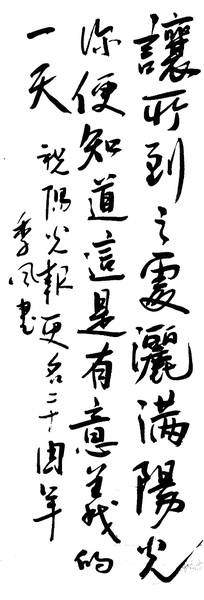 讓所到之處灑满陽光
你便知道這是有意義的
一天
祝陽光報更名二十周年
季风書